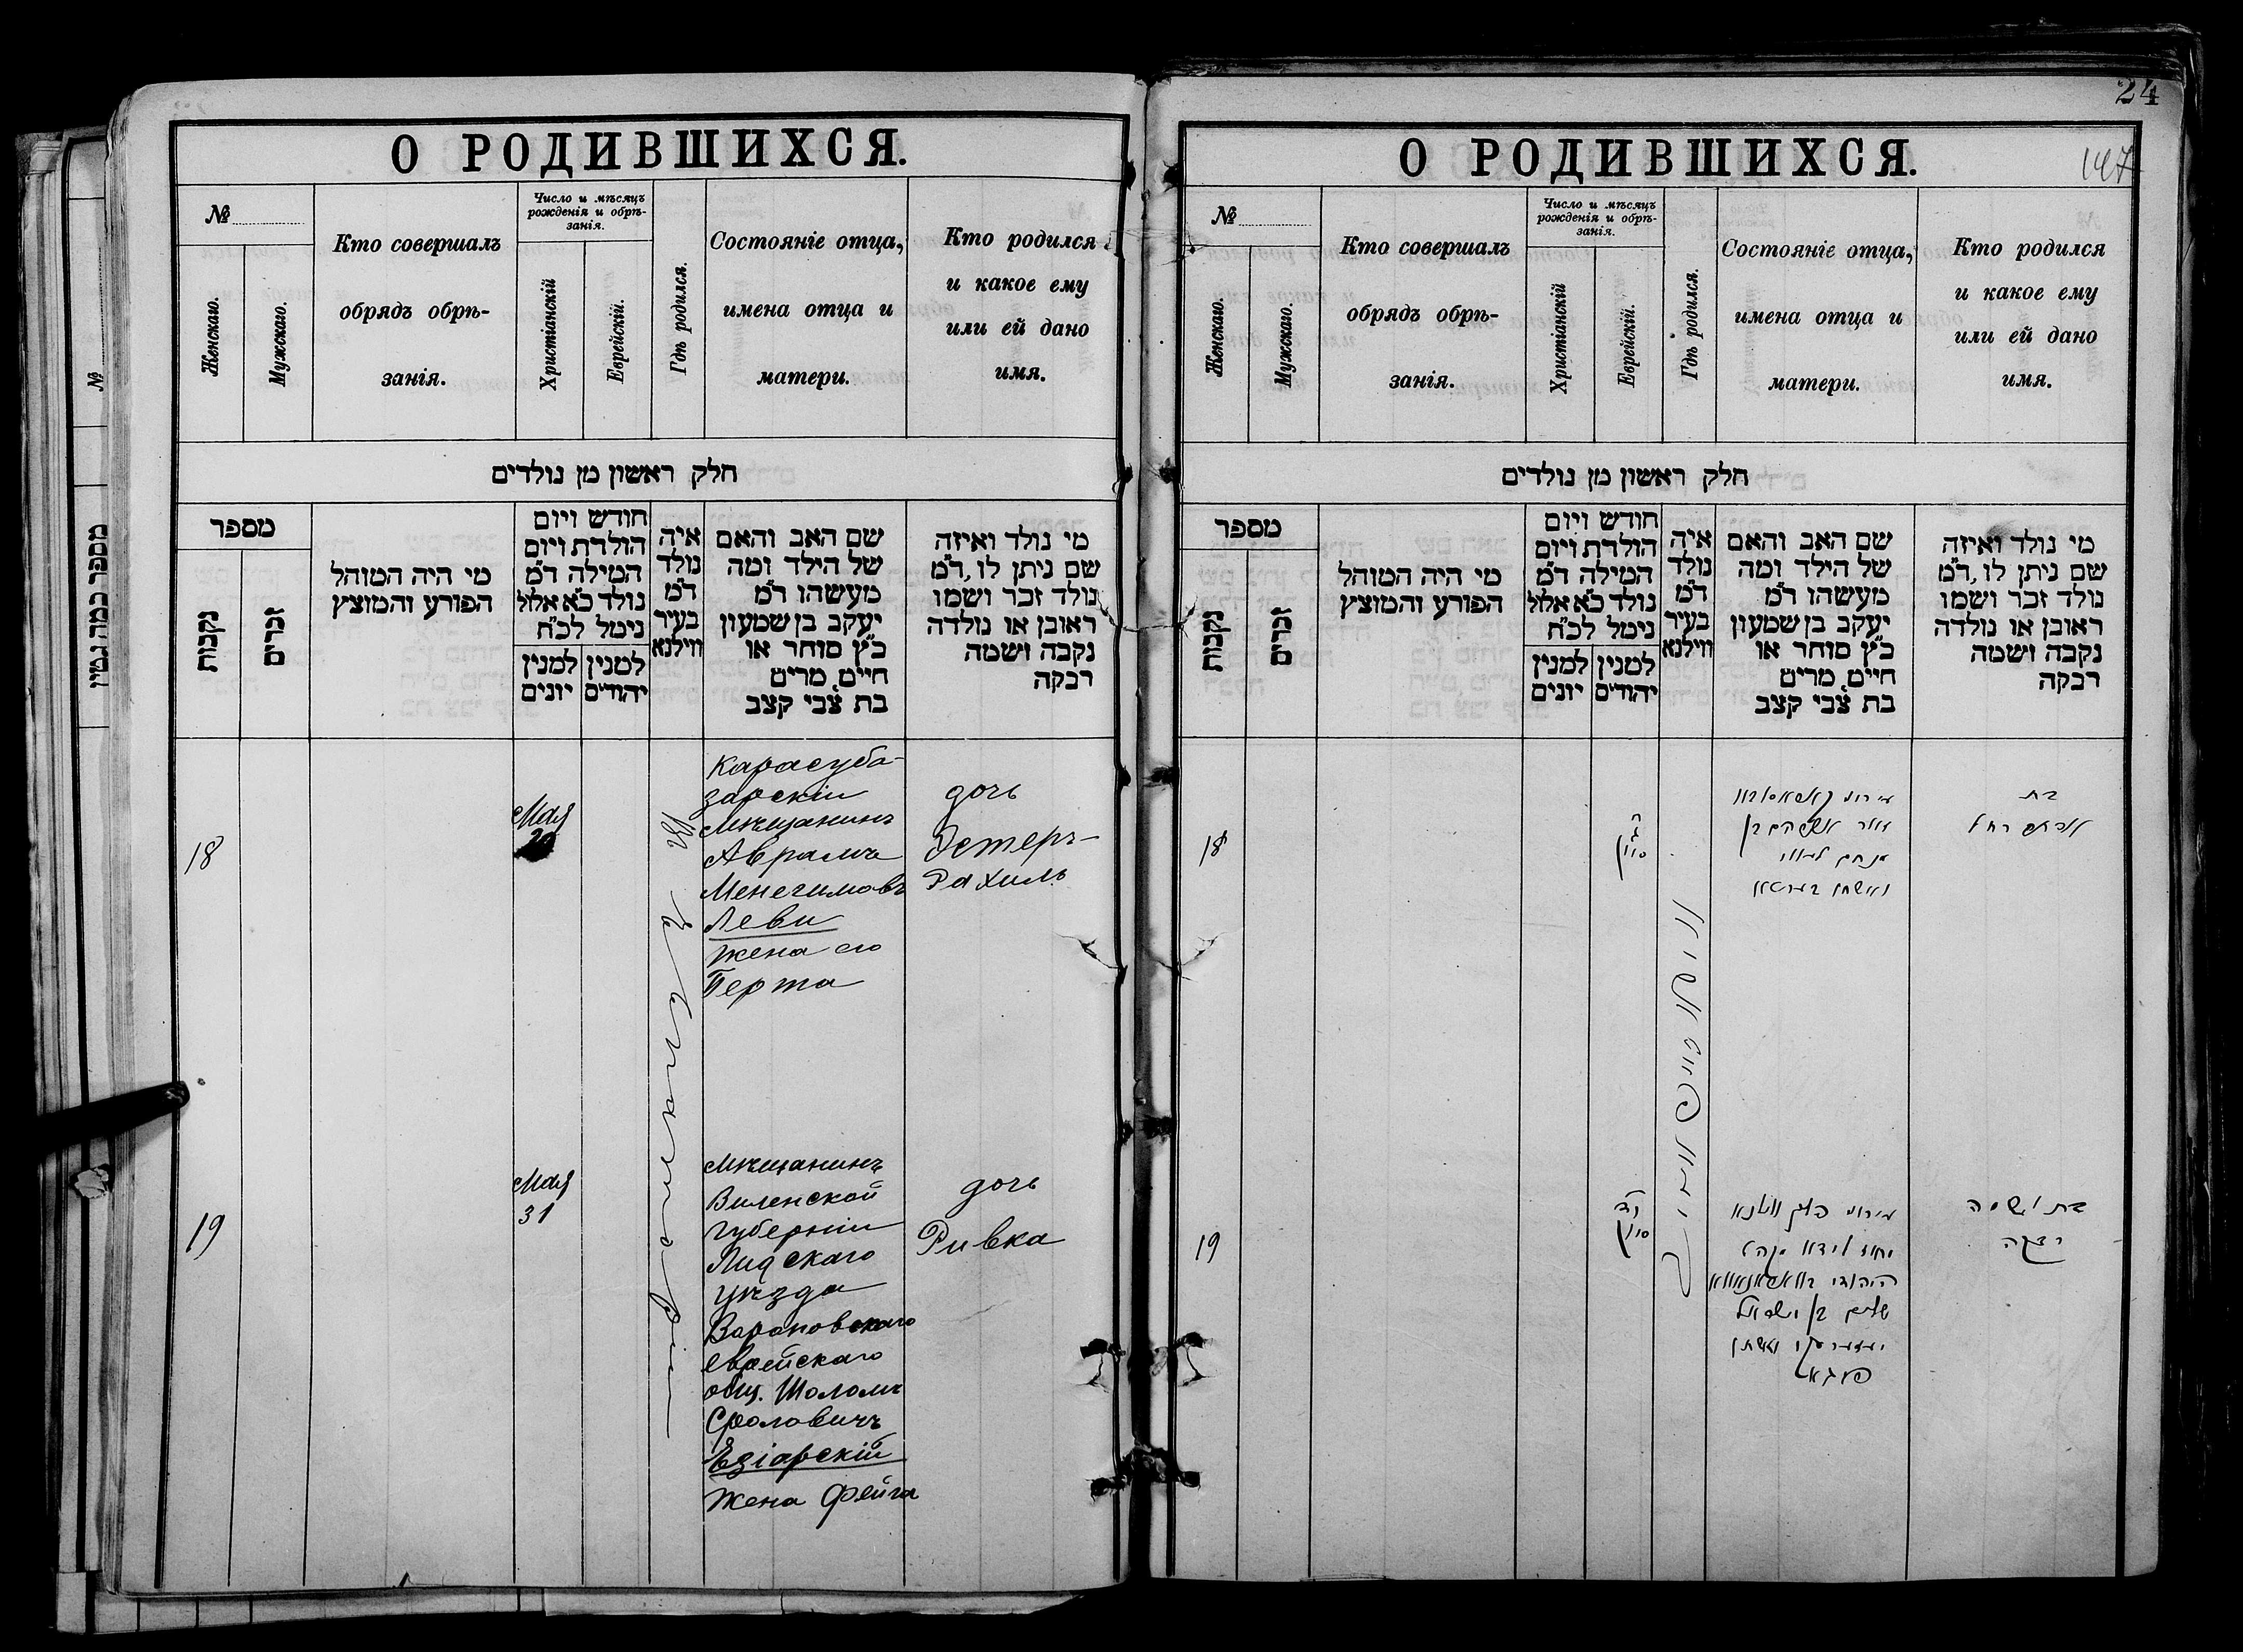 О РОДИВШИХСЯ.
№
Женскаго.
Мужскаго.
Кто совершалъ
обрядъ обрѣ-
занія.
Число и мѣсяцъ
рожденія и обрѣ-
занія.
Христіанскій
Еврейскій.
Гдѣ родился.
Состояніе отца,
имена отца и
матери.
Кто родился
и какое ему
или ей дано
имя.
חלק ראשון מן נולדים
מספר
נקבות
זכרים
מי היה המוהל
הפורע והמוצץ
חודש ויום
הולדת ויום
המילה ד״מ
נולד כ״א אלול
נימל לכ״ח
למנין יונים
למנין יהודים
איה
נולד
ד״מ
בעיר
ווילנא
שם האב והאם
של הילד ומה
מעשהו ד״מ
יעקב בן שמעון
כ״ץ סוחר או
חיים, מרים
בת צבי קצב
מי נולד ואיזה
שם ניתן לו, ד״מ
נולד זכר ושמו
ראובן או נולדה
נקבה ושמה
רבקה
18
Мая
Карасуба-
зарскій
Мѣщанинъ
Аврамъ
Менегимовъ
Леви
жена его
Берта
дочь
Эстеръ-
Рахиль
19
Мая
31
Мѣщанинъ
Виленской
губерніи
Лидскаго
уѣзда
Вороновскаго
еврейскаго
общ. Шоломъ
Сроловичъ
Езіорскій
жена Фейга
дочь
Ривка
24
147
О РОДИВШИХСЯ.
№
Женскаго.
Мужскаго.
Кто совершалъ
обрядъ обрѣ-
занія.
Число и мѣсяцъ
рожденія и обрѣ-
занія.
Христіанскій
Еврейскій.
Гдѣ родился.
Состояніе отца,
имена отца и
матери.
Кто родился
и какое ему
или ей дано
имя.
חלק ראשון מן נולדים
מספר
נקבות
זכרים
מי היה המוהל
הפורע והמוצץ
חודש ויום
הולדת ויום
המילה ד״מ
נולד כ״א אלול
נימל לכ״ח
למנין יונים
למנין יהודים
איה
נולד
ד״מ
בעיר
ווילנא
שם האב והאם
של הילד ומה
מעשהו ד״מ
יעקב בן שמעון
כ״ץ סוחר או
חיים, מרים
בת צבי קצב
מי נולד ואיזה
שם ניתן לו, ד״מ
נולד זכר ושמו
ראובן או נולדה
נקבה ושמה
רבקה
18
סיון
בן
מנחם לעווי
ואשתו בערטא
בת
אסתר רחל
19
סיון
עירוני פלך ווילנא
מחוז לידא מקהל
היהודי
שלום בן ישראל
ואשתו
פייגא
בת ושמה
רבקה